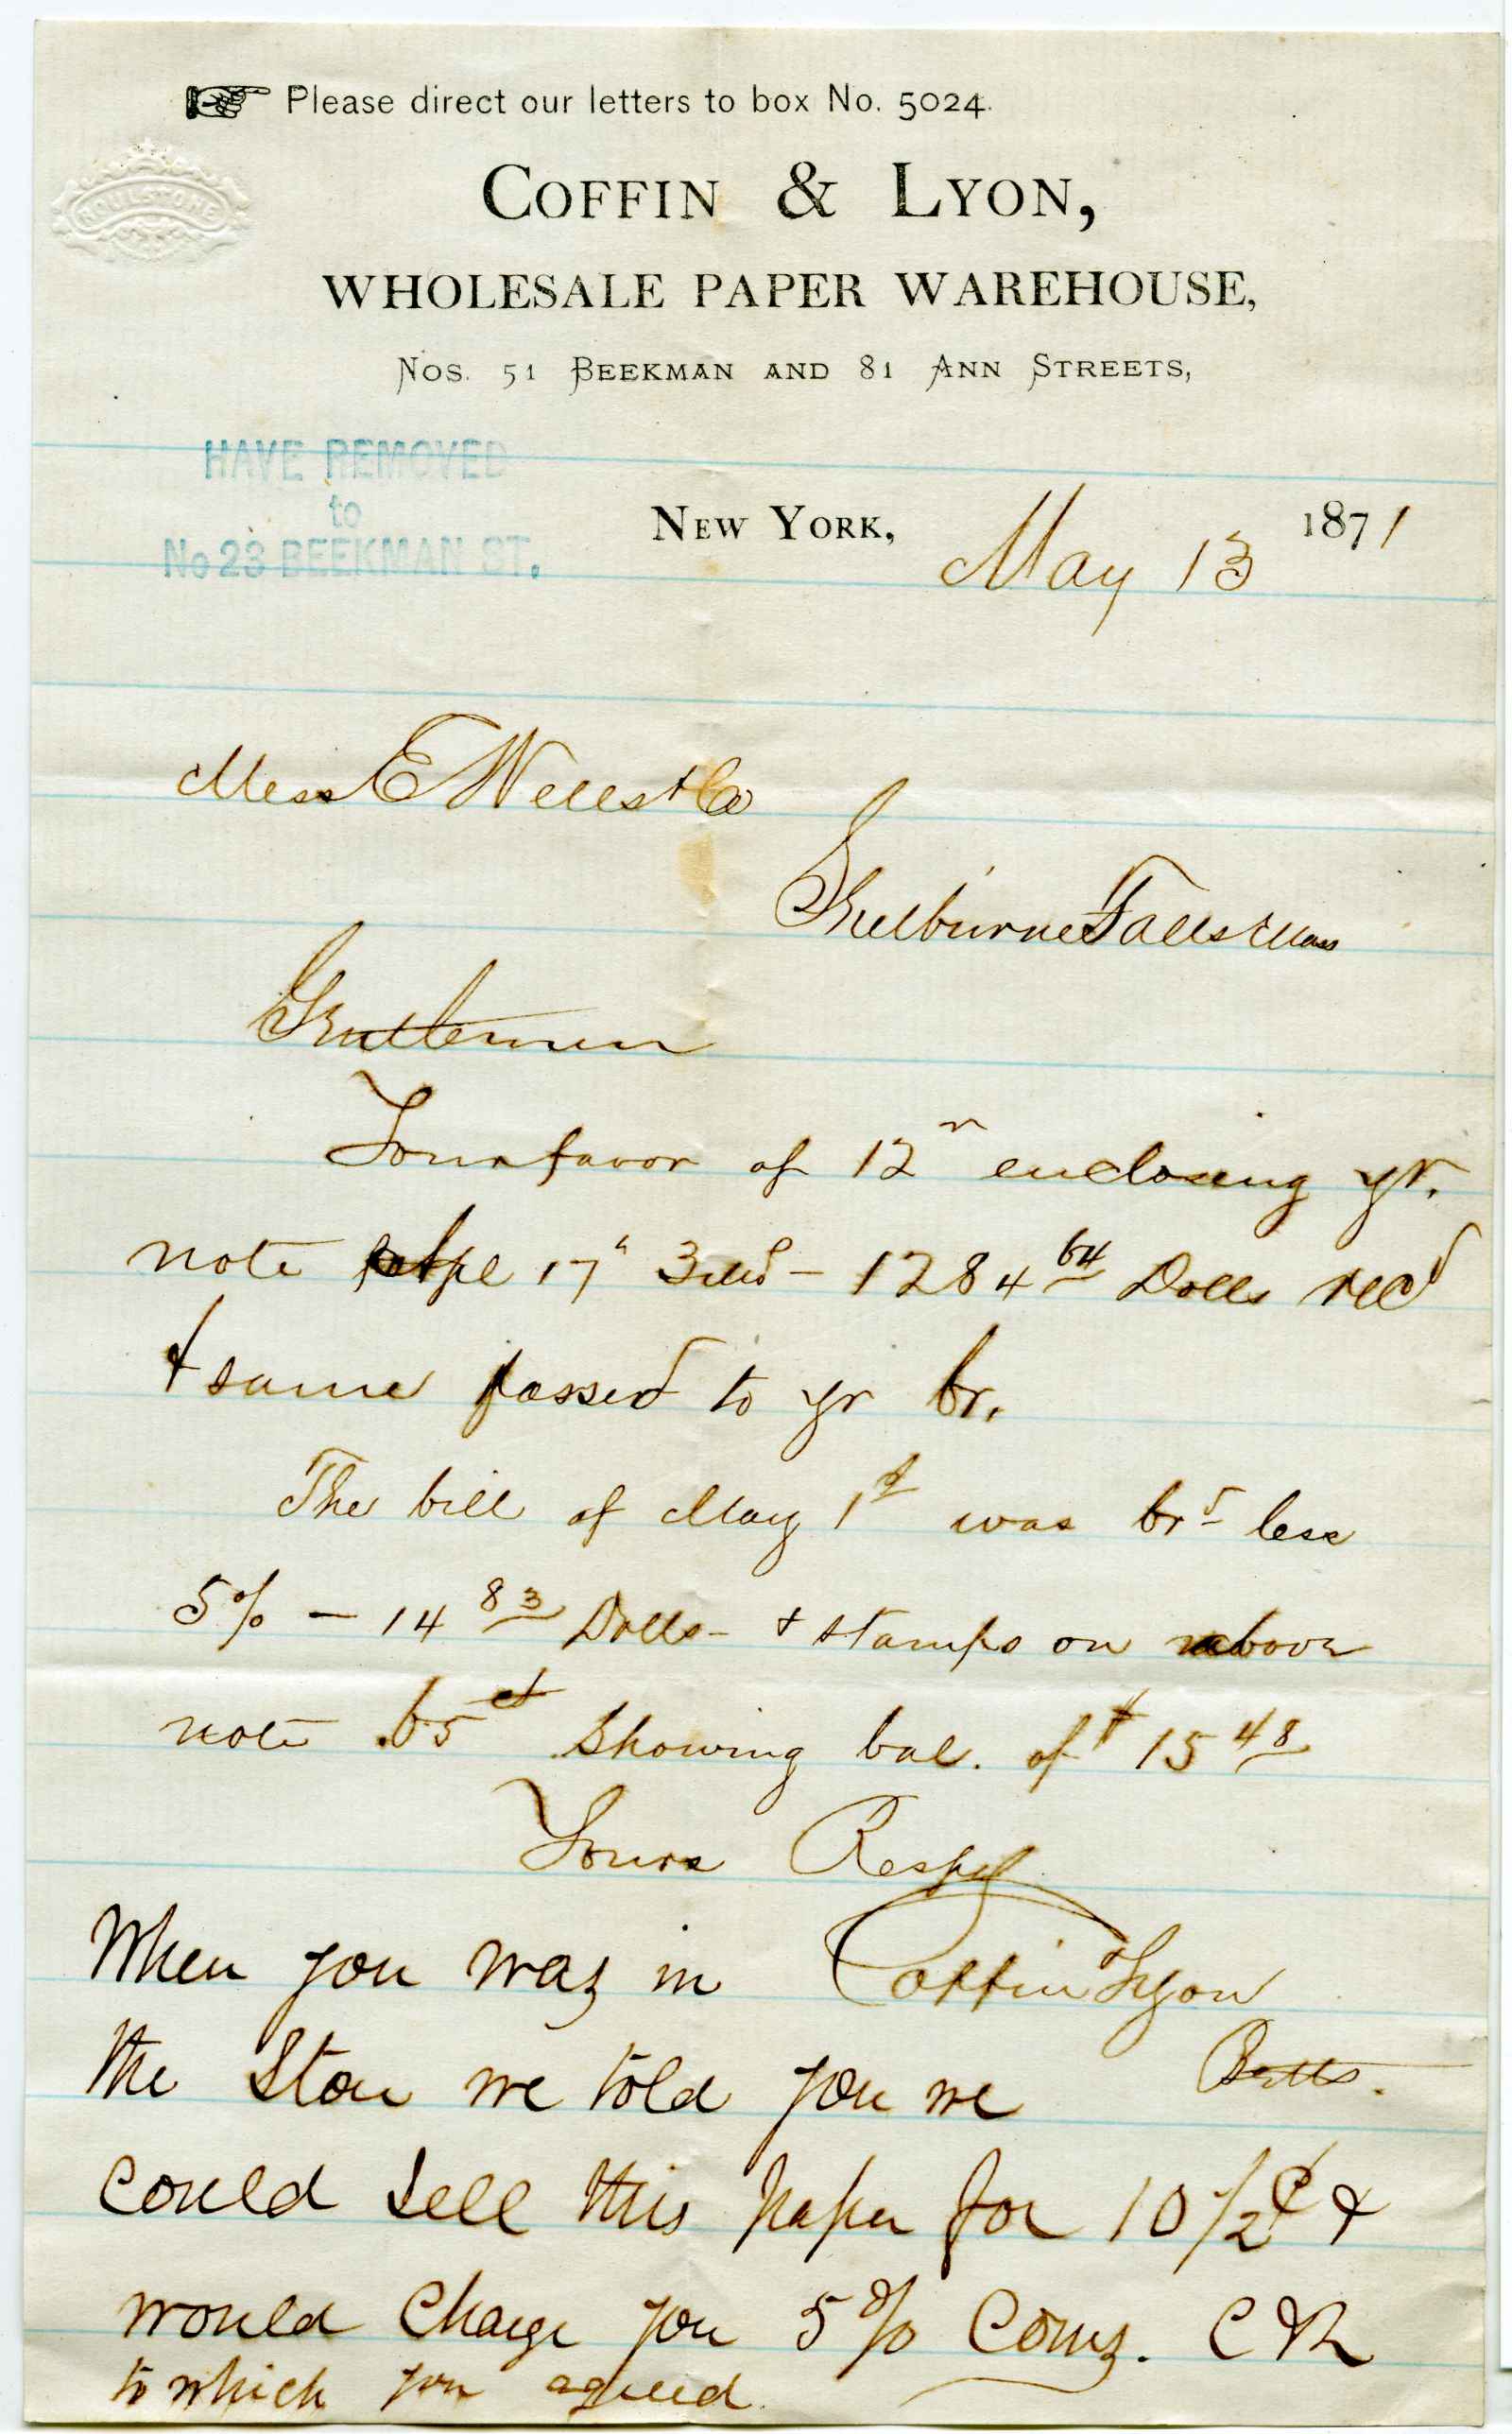 Please direct our letters to box No. 5024.
COFFIN & LYON,
WHOLESALE PAPER WAREHOUSE,
NOS. 51 BEEKMAN AND 81 ANN STREETS,
HAVE REMOVED
to
No 23 BEEKMAN ST.
NEW YORK, May 13 1871
Mess E Wells & Co
Shelburne Falls Mass
Gentlemen
Your favor of 12 enclosing yr.
note 17 3 - 1284 64 Dolls recd
& same passed to yr Cr.
The bill of May 1st was Crd less
5% - 14 83 Dolls - & stamps on above
note .65 ct showing bal. of $ 15 48
Yours Respy
Coffin & Lyon
Betts.
When you was in
the Store we told you we
could sell this paper for 10 1/2 ¢ &
would charge you 5% Coms.
to which you agreed